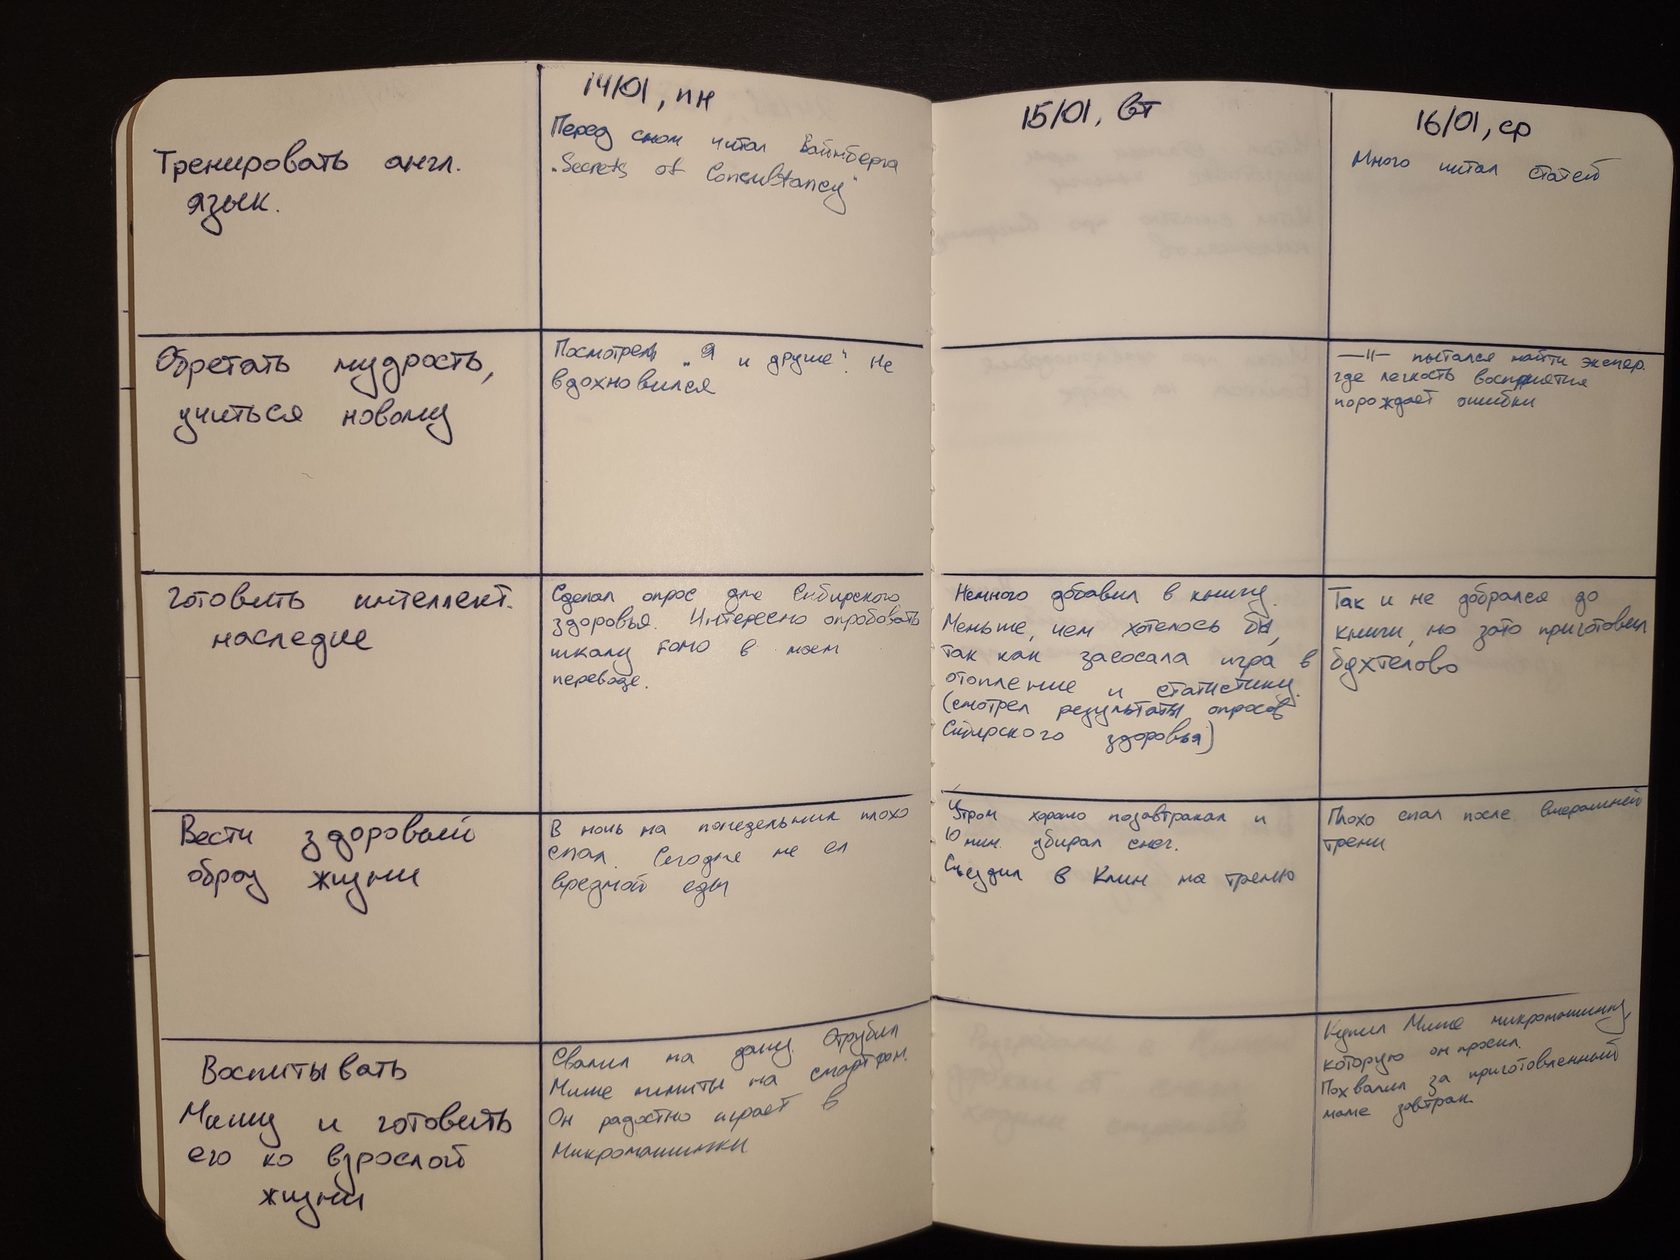 14/01, пн
15/01, вт
16/01, ср
Тренировать англ.
язык.
Перед сном читал Вайнберга
"Secrets of Consultancy"
Много читал статей
Обретать мудрость,
учиться новому
Посмотрел "Я и другие". Не
вдохновился
—||— пытался найти экспер.
где легкость восприятия
порождает ошибки
Готовить интеллект.
наследие
Сделал опрос для Сибирского
здоровья. Интересно опробовать
шкалу в моем
переводе.
Немного добавил в книгу.
Меньше, чем хотелось бы,
так как засосала игра в
отопление и статистику.
(смотрел результаты опросов
Сибирского здоровья)
Так и не добрался до
книги, но зато приготовил
бухтелово
Вести здоровый
образ жизни
В ночь на понедельник плохо
спал. Сегодня не ел
вредной еды
Утром хорошо позавтракал и
10 мин. убирал снег.
Съездил в Клин на треню
Плохо спал после вчерашней
трени
Воспитывать
Мишу и готовить
его ко взрослой
жизни
Свалил на дачу. Отрубил
Мише лимиты на смартфон.
Он радостно играет в
Микромашинки
Купил Мише микромашинку,
которую он просил.
Похвалил за приготовленный
маме завтрак.